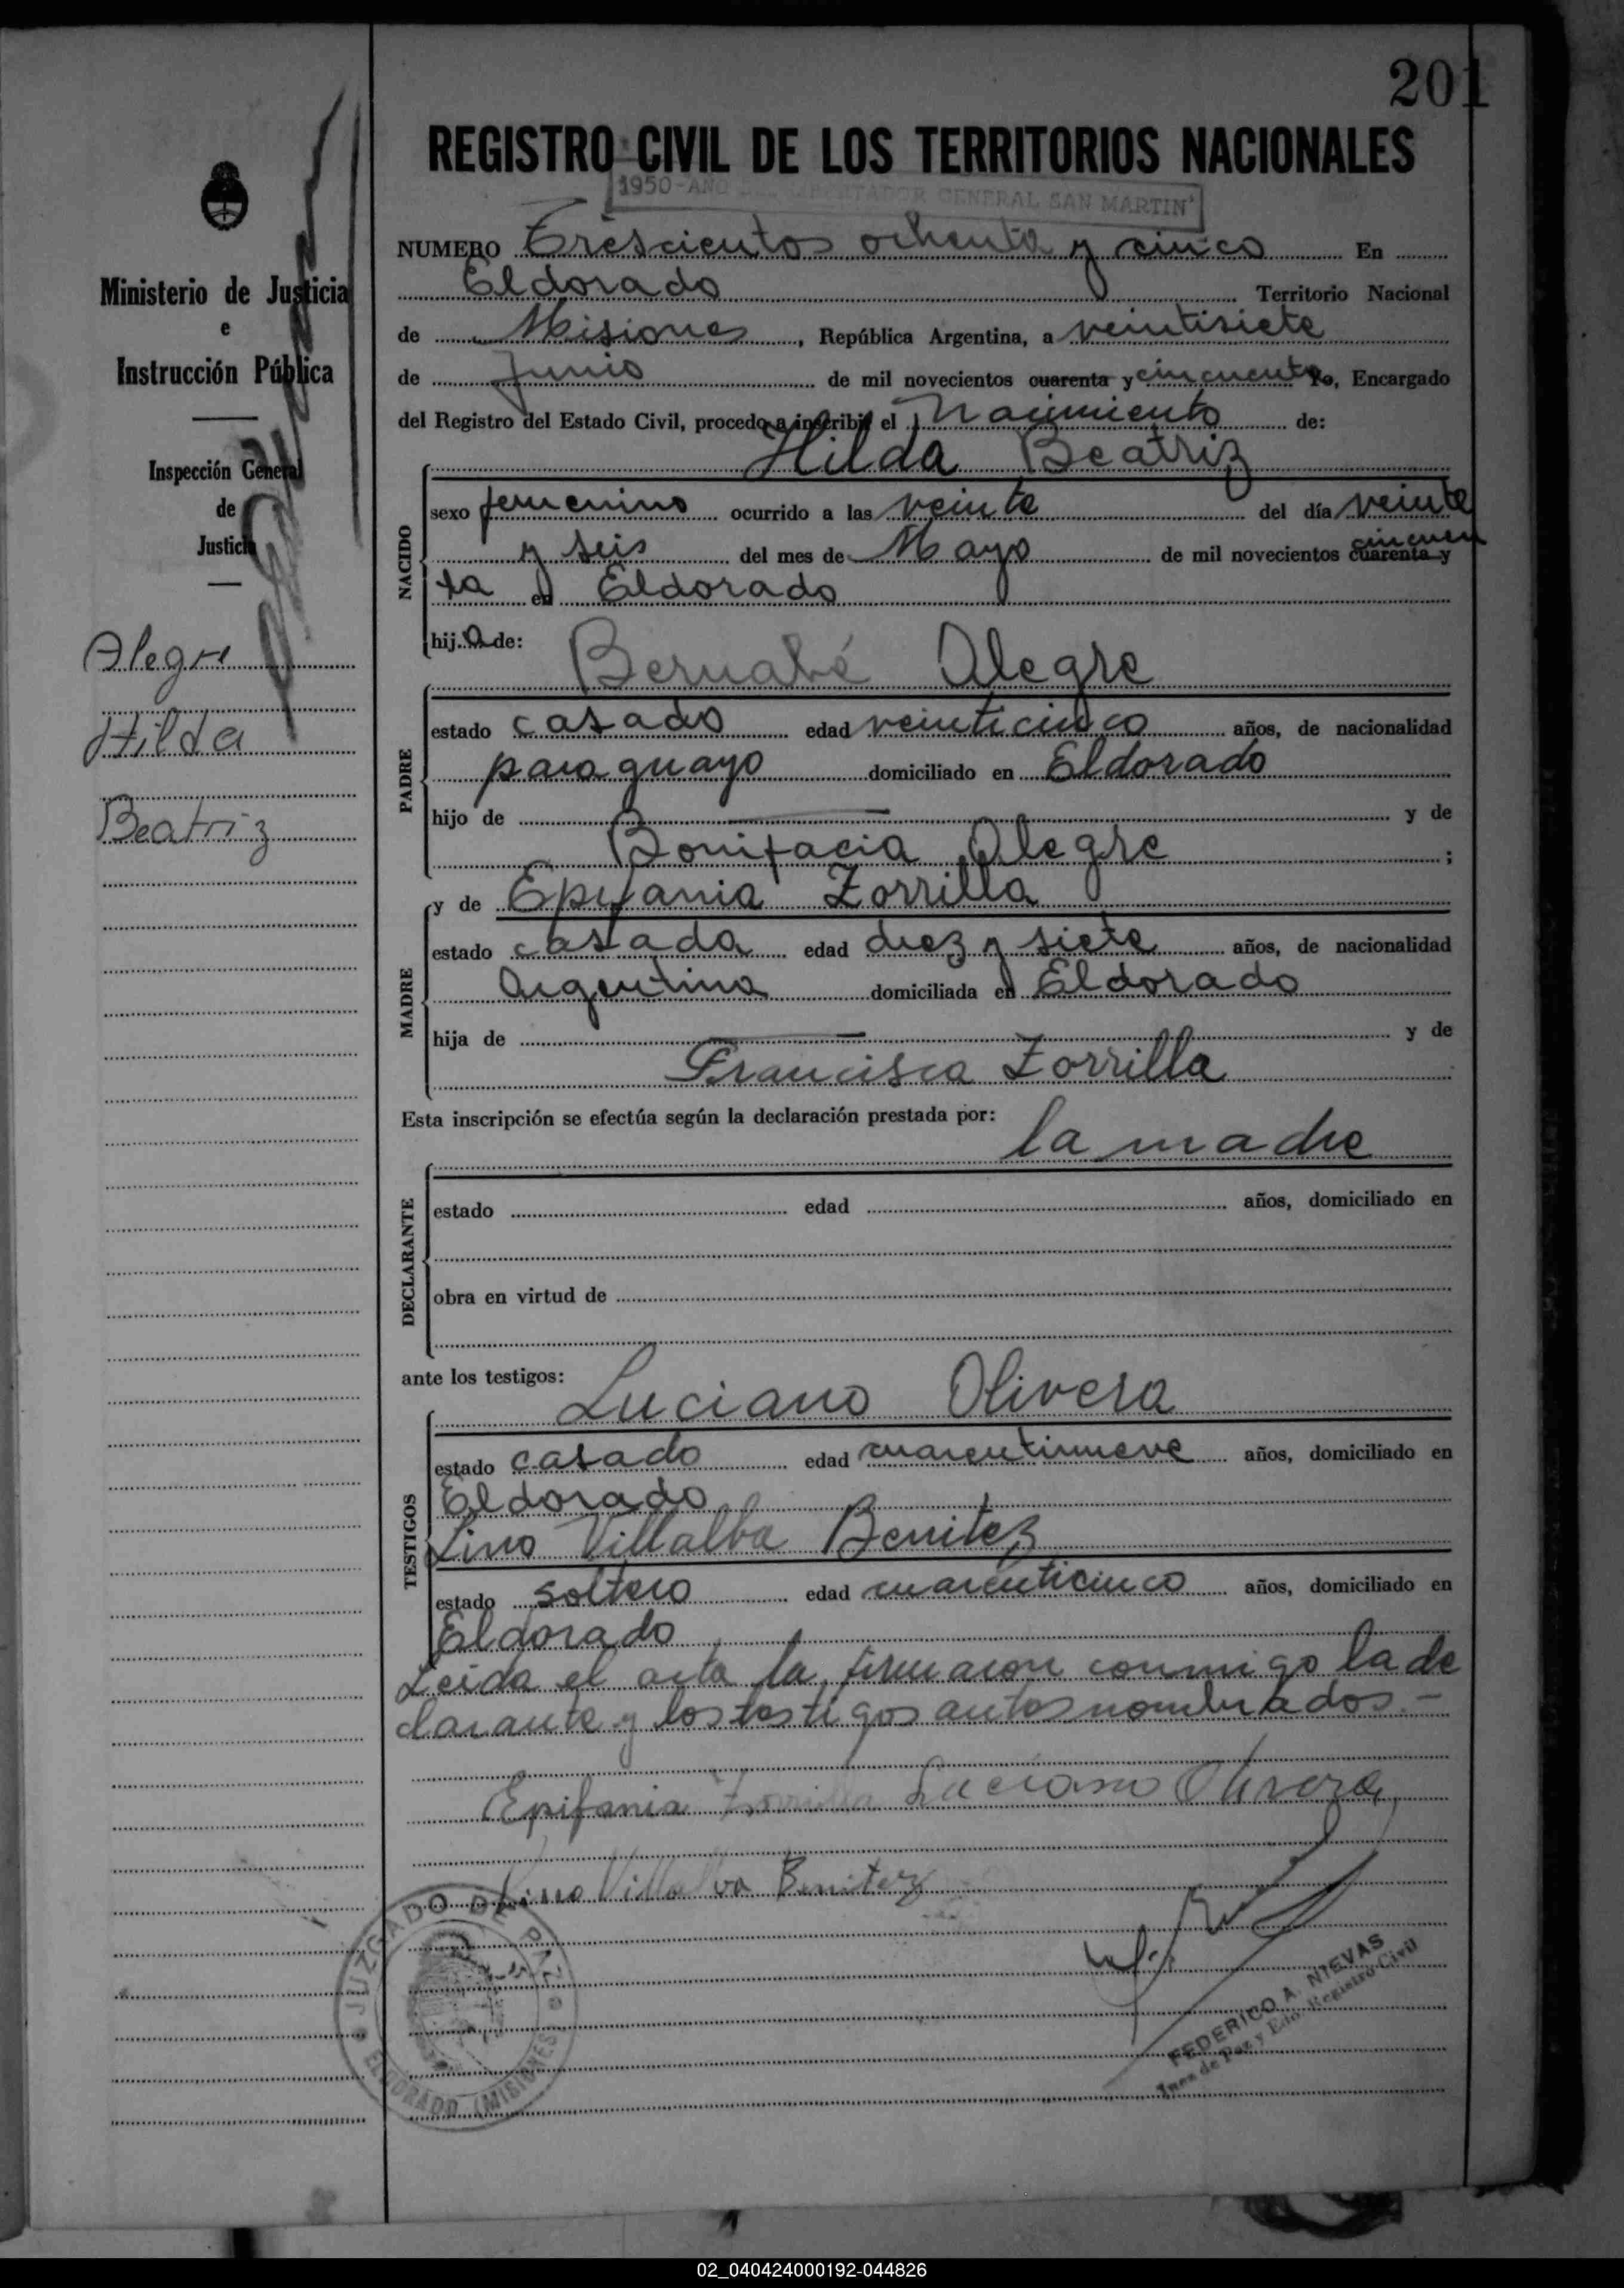 201
REGISTRO CIVIL DE LOS TERRITORIOS NACIONALES
1950 - AÑO DEL LIBERTADOR GENERAL SAN MARTIN"
Ministerio de Justicia
e
Instrucción Pública
Inspección General
de
Justicia
Alegre
Hilda
Beatriz
NUMERO Trescientos ochenta y cinco En
Eldorado Territorio Nacional
de Misiones, República Argentina, a veintisiete
de Junio de mil novecientos cuarenta y cincuenta Yo, Encargado
del Registro del Estado Civil, procedo a inscribir el Nacimiento de:
Hilda Beatriz
NACIDO
sexo femenino ocurrido a las veinte del día veinte
y seis del mes de Mayo de mil novecientos cuarenta y cincuen
ta en Eldorado
hija de:
Bernabé Alegre
PADRE
estado casado edad veinticinco años, de nacionalidad
paraguayo domiciliado en Eldorado
hijo de y de
Bonifacia Alegre ;
y de Epifania Zorrilla
MADRE
estado casada edad diez y siete años, de nacionalidad
Argentina domiciliada en Eldorado
hija de y de
Francisca Zorrilla
Esta inscripción se efectúa según la declaración prestada por:
la madre
DECLARANTE
estado edad años, domiciliado en
obra en virtud de
ante los testigos:
Luciano Olivera
TESTIGOS
estado casado edad cuarentinueve años, domiciliado en
Eldorado
Lino Villalba Benitez
estado soltero edad cuarenticinco años, domiciliado en
Eldorado
Leida el acta la firmaron conmigo la de
clarante y los testigos antes nombrados.-
Epifania Zorrilla Luciano Olivera
Lino Villalva Benitez
JUZGADO DE PAZ
ELDORADO (MISIONES)
FEDERICO A. NIEVAS
Juez de Paz y Edo. Registro Civil
02_040424000192-044826